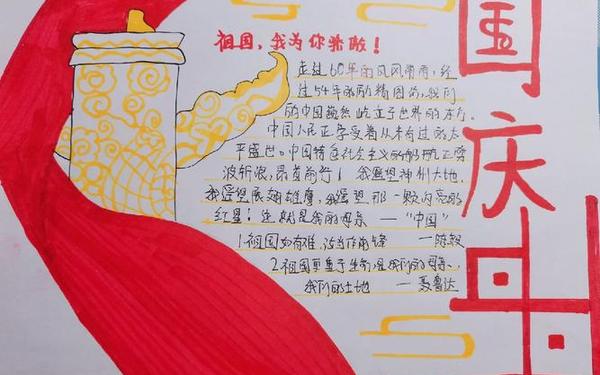 祖国,我为你骄傲!
走过60年的风风雨雨,经
过54年的励精图治,我们
的中国巍然屹立于世界的东方。
中国人民正享受着从未有过的太
平盛世。中国特色社会主义的航正劈
波斩浪,昂首前行!我遥望神州大地,
我遥望展翅雄鹰,我遥望那一颗闪亮的
红星:这就是我的母亲——“中国”
1.祖国如有难,汝当作前锋 ——陈毅
2.祖国更重于生命,是我们的母亲,
我们的土地 ——聂鲁达
国庆